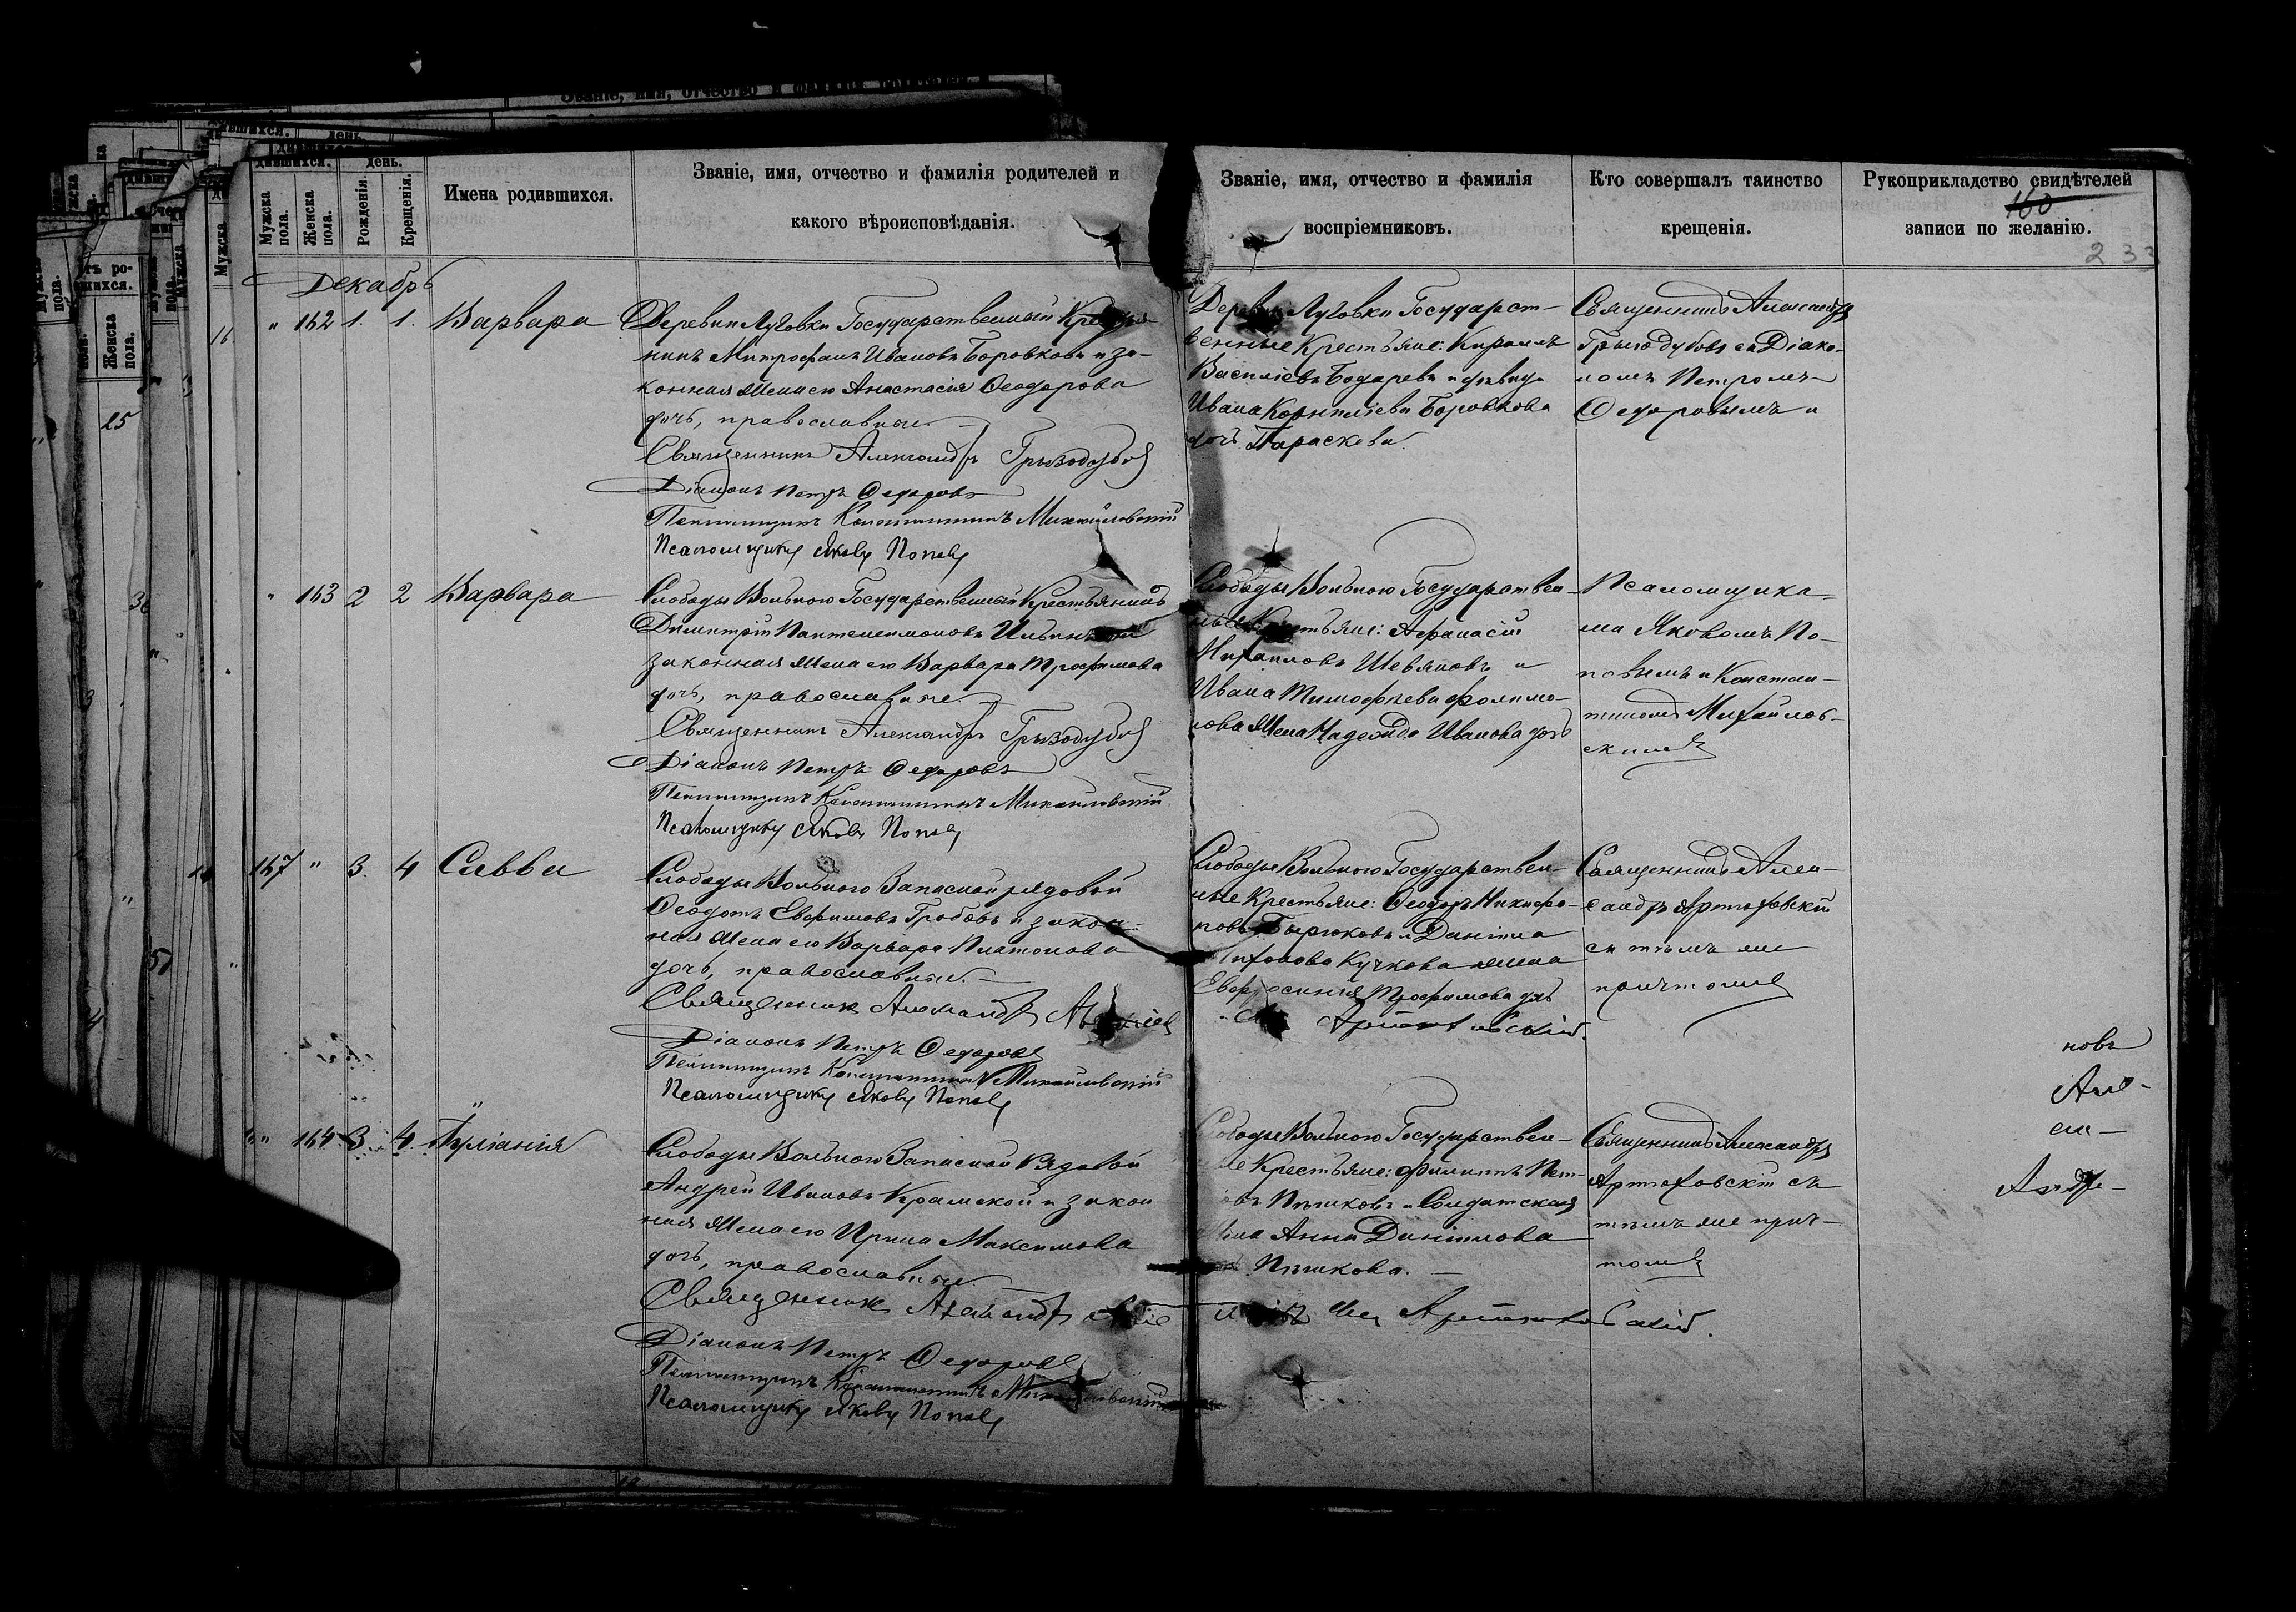 Имена родившихся.
Званіе, имя, отчество и фамилія родителей и
какого вѣроисповѣданія.
Званіе, имя, отчество и фамилія
воспріемниковъ.
Кто совершалъ таинство
крещенія.
Рукоприкладство свидѣтелей
записи по желанію.
160
дившихся.
день.
Мужска пола.
Женска пола.
Рожденія.
Крещенія.
Декабрь
" 162 1. 1. Варвара
Деревни Луговки Государственный Кресть-
нинъ Митрофанъ Ивановъ Боровковъ и за-
конная жена его Анастасія Ѳеодорова
дочь, православные.
Священникъ Александръ Грызодубовъ
Діаконъ Петръ Ѳедоровъ
Псаломщикъ Константинъ Михайловскій
Псаломщикъ Яковъ Поповъ
Деревни Луговки Государст-
венные Крестьяне: Кириллъ
Василіевъ и дѣвица
Ивана Корниліева Боровкова
дочь Параскева
Священникъ Александръ
Грызодубовъ съ Діако-
номъ Петромъ
Ѳедоровымъ и
" 163 2 2 Варвара
Слободы Вольного Государственный Крестьянинъ
Димитрій Пантелеимоновъ
законная жена его Варвара Трофимова
дочь, православные.
Священникъ Александръ Грызодубовъ
Діаконъ Петръ Ѳедоровъ
Псаломщикъ Константинъ Михайловскій
Псаломщикъ Яковъ Поповъ
Слободы Вольного Государствен-
ные Крестьяне: Аѳанасій
Михаиловъ и
Ивана Тимофѣева Филимо-
нова жена Надежда Иванова дочь
Псаломщика-
ма Яковомъ По-
повымъ и Констан-
тиномъ Михайлов-
скимъ
167 " 3. 4 Савва
Слободы Вольного Запасной рядовой
Ѳеодотъ Евфимовъ Гробовъ и закон-
ная жена его Варвара Платонова
дочь, православные.
Священникъ Александръ Алексіевъ
Діаконъ Петръ Ѳедоровъ
Псаломщикъ Константинъ Михайловскій
Псаломщикъ Яковъ Поповъ
Слободы Вольного Государствен-
ные Крестьяне: Ѳеодоръ Никифо-
ровъ Бирюковъ и Даніила
Кучкова жена
Евфросинія Трофимова дочь
Артюховскій.
Священникъ Алек-
сандръ Артюховскій
съ тѣмъ же
причтомъ
" 164 3. 4. Іуліанія
Слободы Вольного Запасной Рядовой
Андрей Ивановъ Крамской и закон
ная жена его Ирина Максимова
дочь, православные.
Священникъ Александръ
Діаконъ Петръ Ѳедоровъ
Псаломщикъ Константинъ Михайловскій
Псаломщикъ Яковъ Поповъ
Слободы Вольного Государствен-
ные Крестьяне: Филиппъ Пет-
ровъ Пѣшковъ и Солдатская
жена Анна Даніилова
Пѣшкова.
Артюховскій.
Священникъ Александръ
Артюховскій съ
тѣмъ же прич-
томъ
новъ